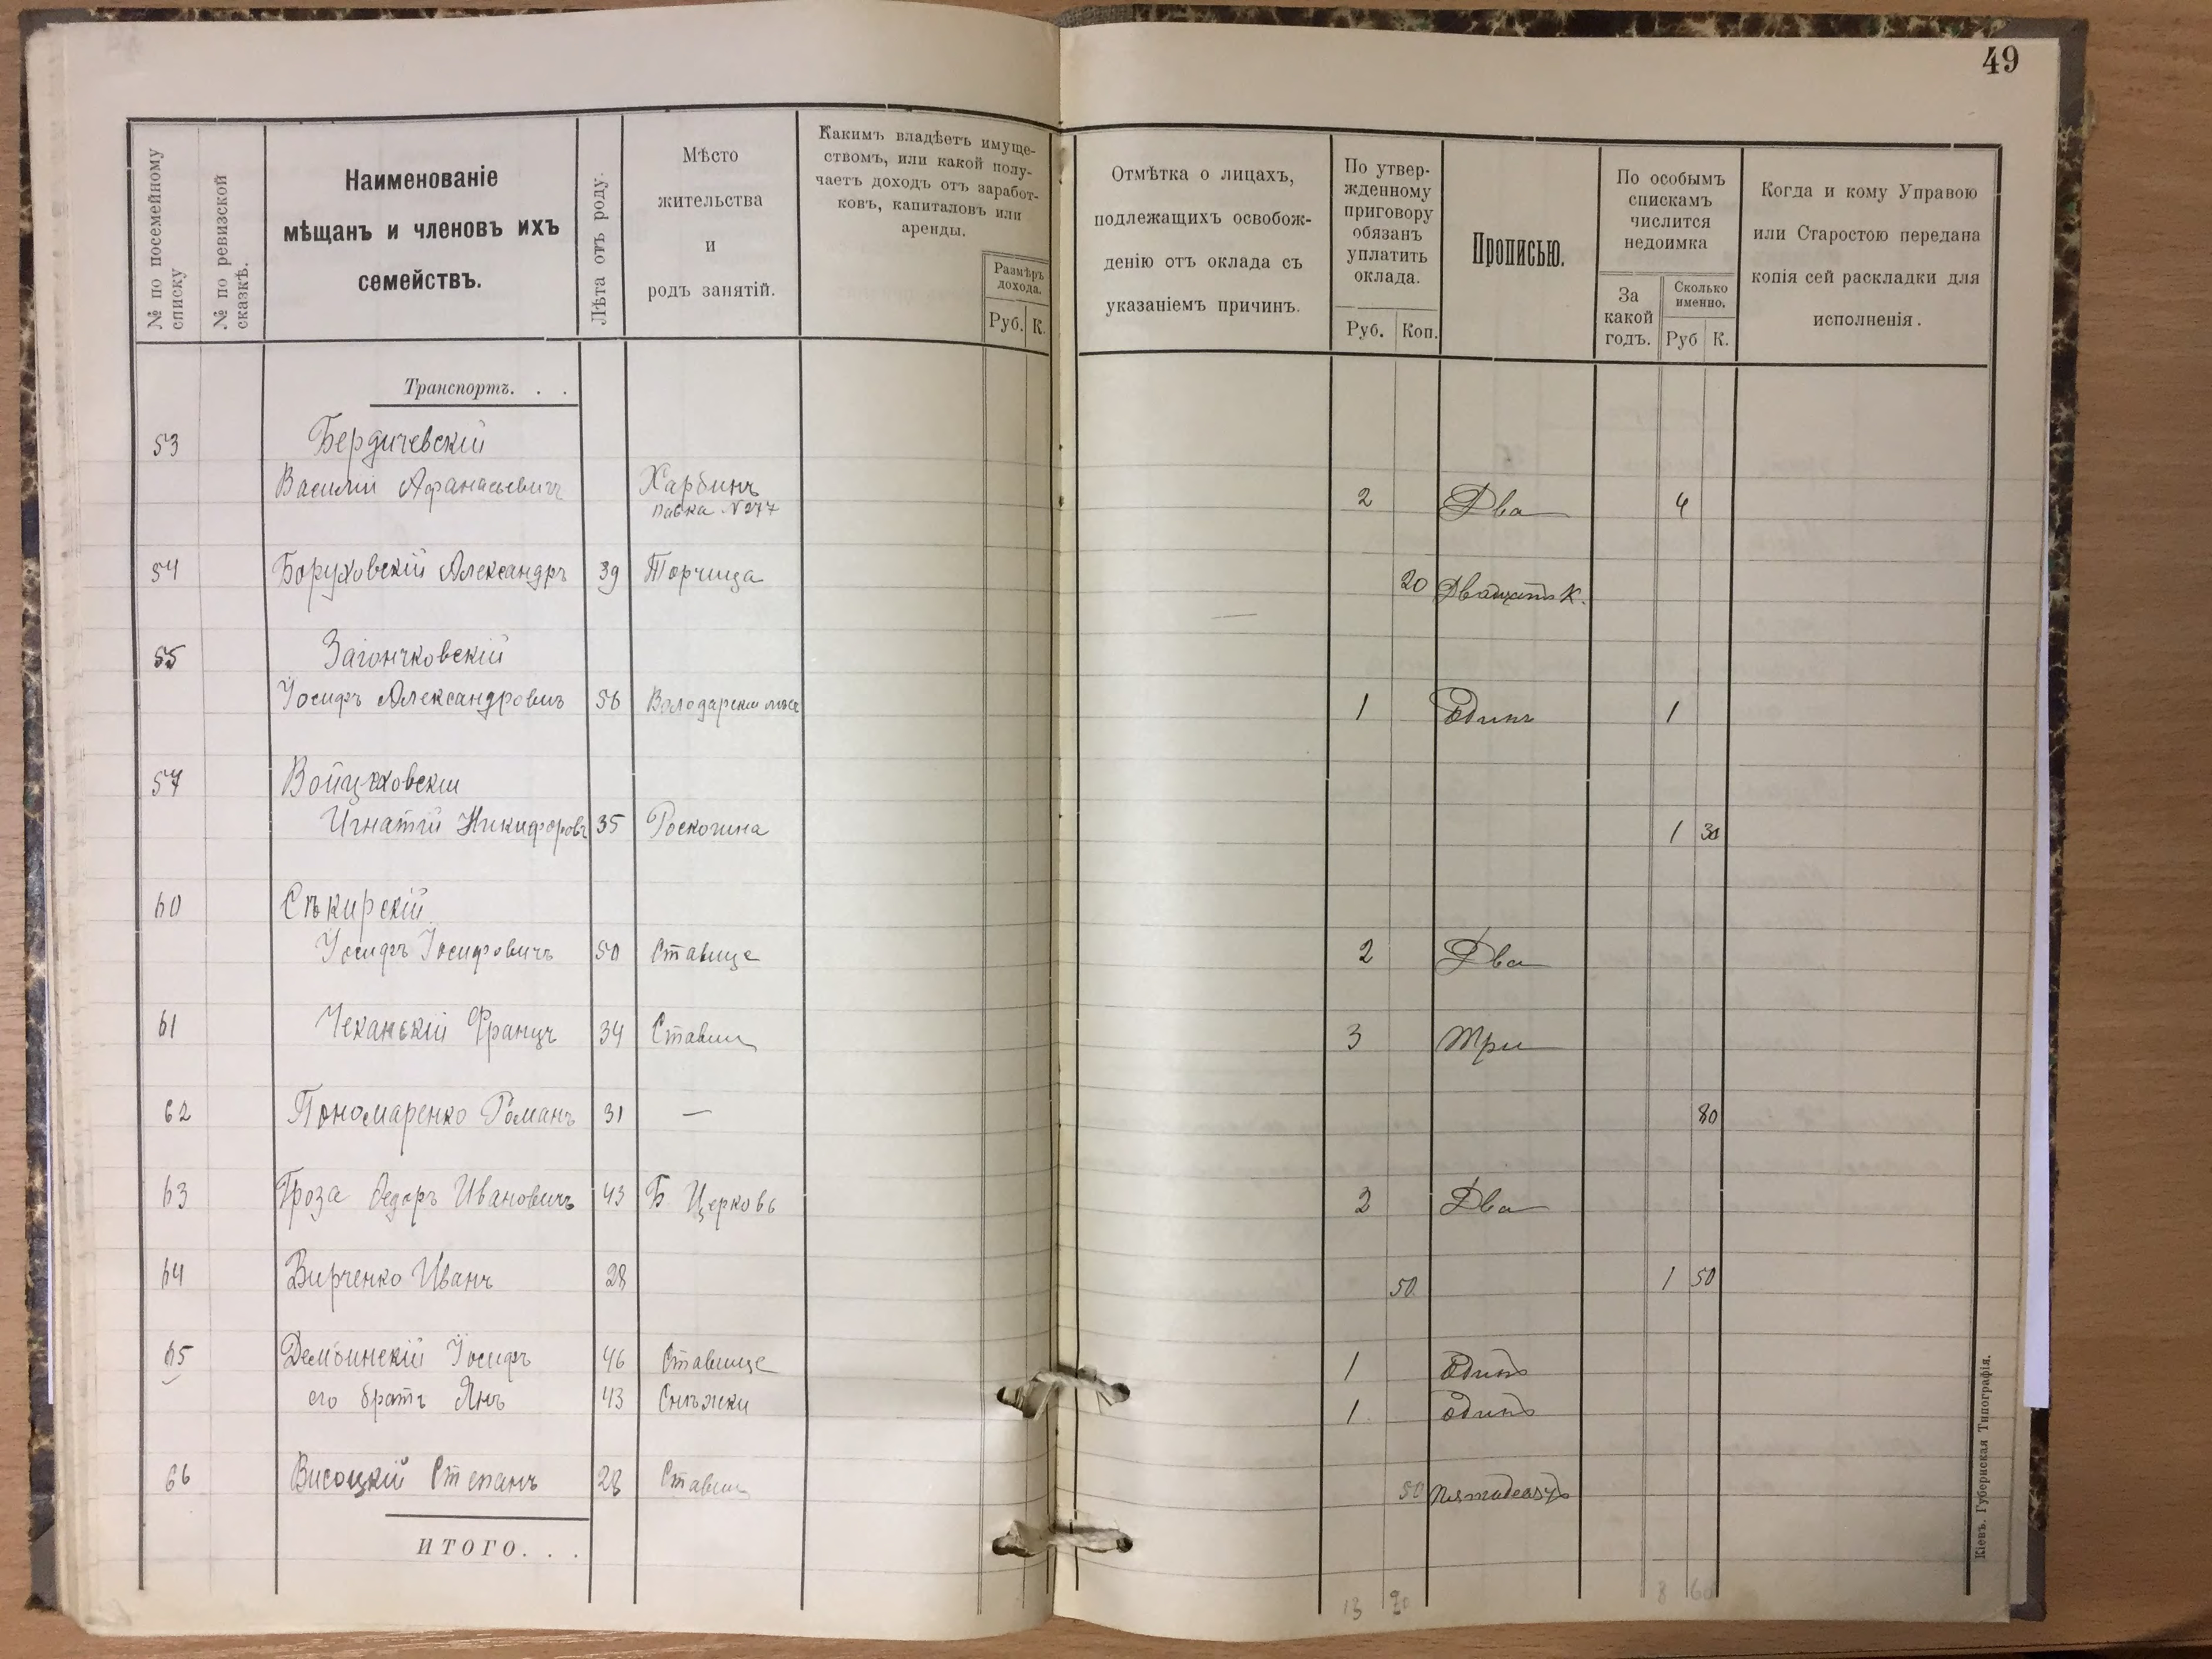 49
№ по посемейному списку
№ по ревизской сказкѣ.
Наименованіе
мѣщанъ и членовъ ихъ
семействъ.
Лѣта отъ роду.
Мѣсто
жительства
и
родъ занятій.
Какимъ владѣетъ имуще-
ствомъ, или какой полу-
чаетъ доходъ отъ заработ-
ковъ, капиталовъ или
аренды.
Размѣръ
дохода.
Руб. К.
Отмѣтка о лицахъ,
подлежащихъ освобож-
денію отъ оклада съ
указаніемъ причинъ.
По утвер-
жденному
приговору
обязанъ
уплатить
оклада.
Руб. Коп.
Прописью.
По особымъ
спискамъ
числится
недоимка
За
какой
годъ.
Сколько
именно.
Руб К.
Когда и кому Управою
или Старостою передана
копія сей раскладки для
исполненія.
Транспортъ. . .
53 Бердичевскій
Василій Афанасьевичъ Харбинъ 2 Два 4
лавка №277
54 Боруховскій Александръ 39 Торчица 20 Двадцать К.
55 Загончковскій
Іосифъ Александровичъ 56 Володарски 1 Одинъ 1
57 Войцеховскій
Игнатій Никифоровъ 35 Роскошна 1 30
60 Сѣкирскій
Іосифъ Іосифовичъ 50 Ставище 2 Два
61 Чеканскій Францъ 34 Ставищ 3 Три
62 Пономаренко Романъ 31 — 80
63 Гроза Федоръ Ивановичъ 43 Б. Церковь 2 Два
64 Вирченко Иванъ 28 50 1 50
65 Дембинскій Іосифъ 46 Ставище 1 Одинъ
его братъ Янъ 43 Снѣжки 1 Одинъ
66 Висоцкій Степанъ 28 Ставищ 50 Пятьдесятъ
ИТОГО. . .
13 20 8 60
Кіевъ. Губернская Типографія.